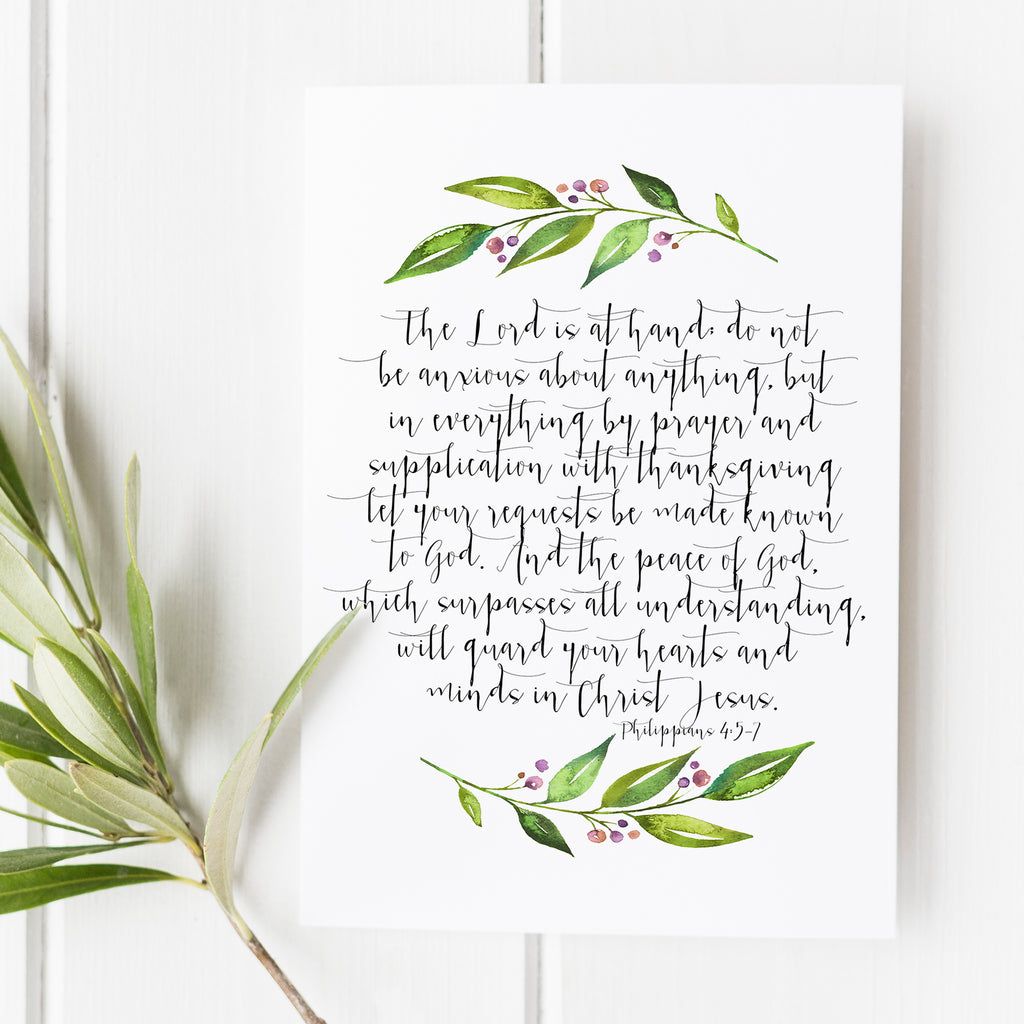 The Lord is at hand; do not
be anxious about anything, but
in everything by prayer and
supplication with thanksgiving
let your requests be made known
to God. And the peace of God,
which surpasses all understanding,
will guard your hearts and
minds in Christ Jesus.
Philippians 4:5-7